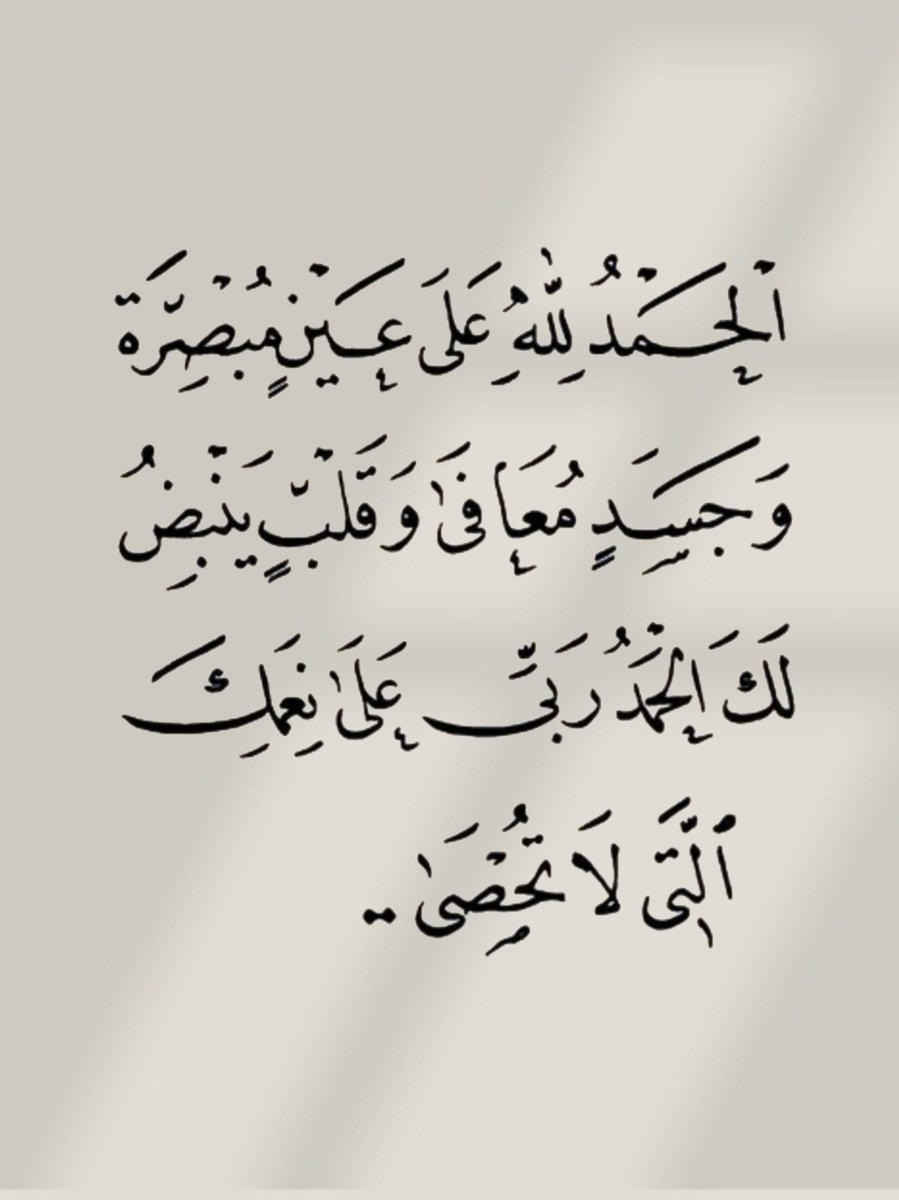 اَلْحَمْدُ لِلّٰهِ عَلَى عَيْنٍ مُبْصِرَّة
وَجَسَدٍ مُعَافَىٰ وَقَلْبٍّ يَنْبِضُ
لَكَ اَلْحَمْدُ رَبَّى عَلَىٰ نِعَمِكَ
ٱلَّتَى لَا تُحْصَىٰ ..